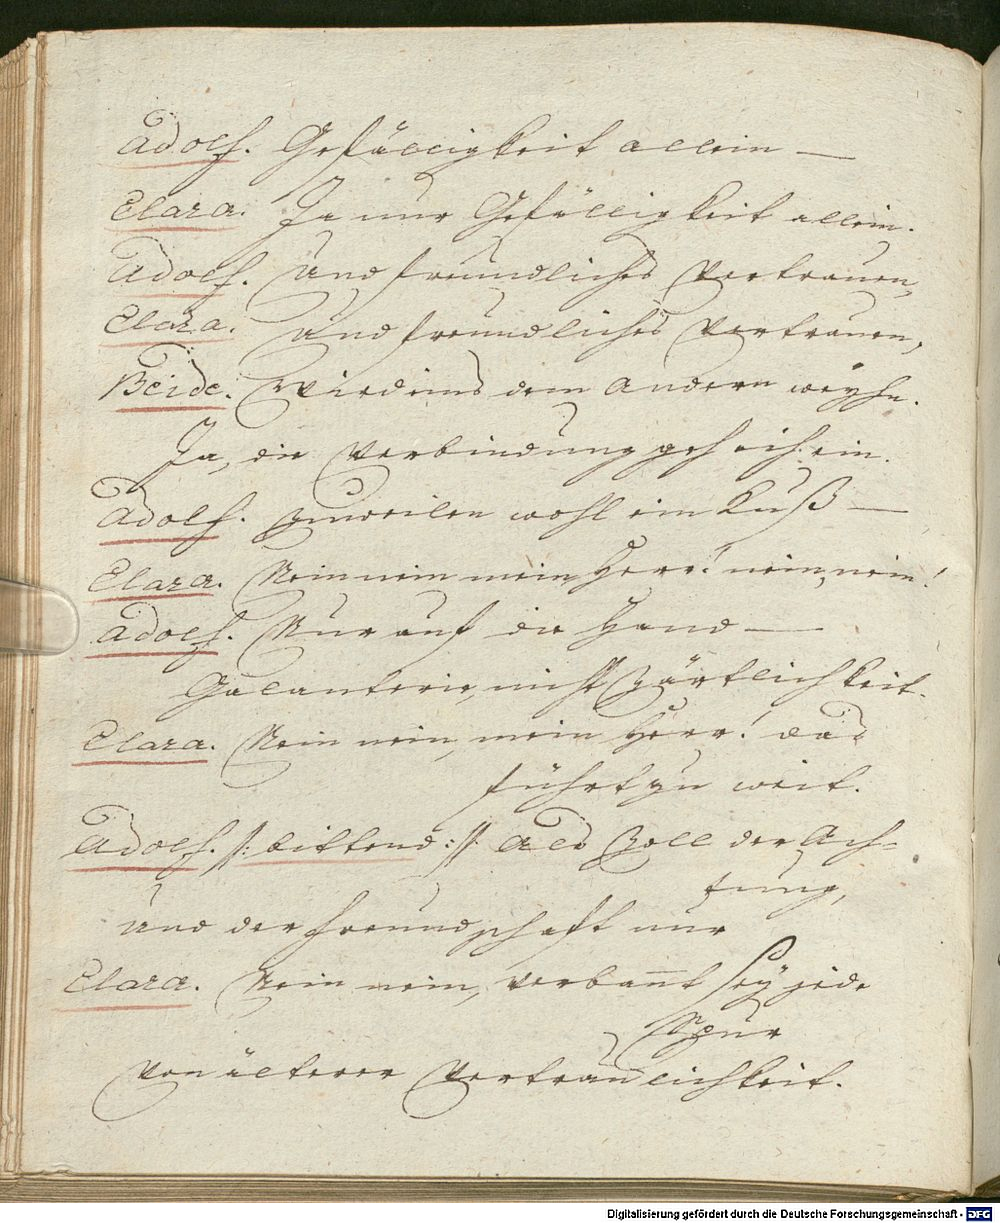 Adolf. Gefälligkeit allein —
Clara. Ja nur Gefälligkeit allein.
Adolf. Und freundliches Vertrauen,
Clara. Und freundliches Vertrauen,
Beide. Wird eins dem Andern weyhn.
Ja, die Verbindung geh ich ein.
Adolf. Zuweilen wohl ein Kuß —
Clara. Nein nein mein Herr! nein, nein!
Adolf. Nur auf die Hand —
Galanterie, nicht Zärtlichkeit.
Clara. Nein nein, mein Herr! das
führt zu weit.
Adolf. /: bittend :/ Als Zoll der Ach-
tung,
Und der Freundschaft nur
Clara. Nein nein, verbannt sey jede
Spur
Von älterer Vertraulichkeit.
Digitalisierung gefördert durch die Deutsche Forschungsgemeinschaft - DFG